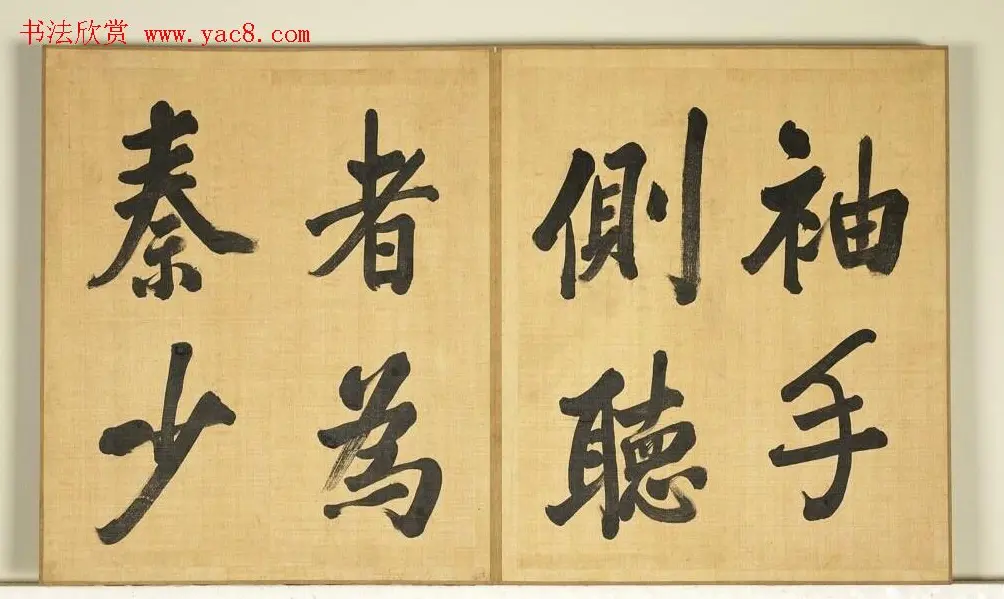 书法欣赏 www.yac8.com
袖手
側聽
者為
秦少